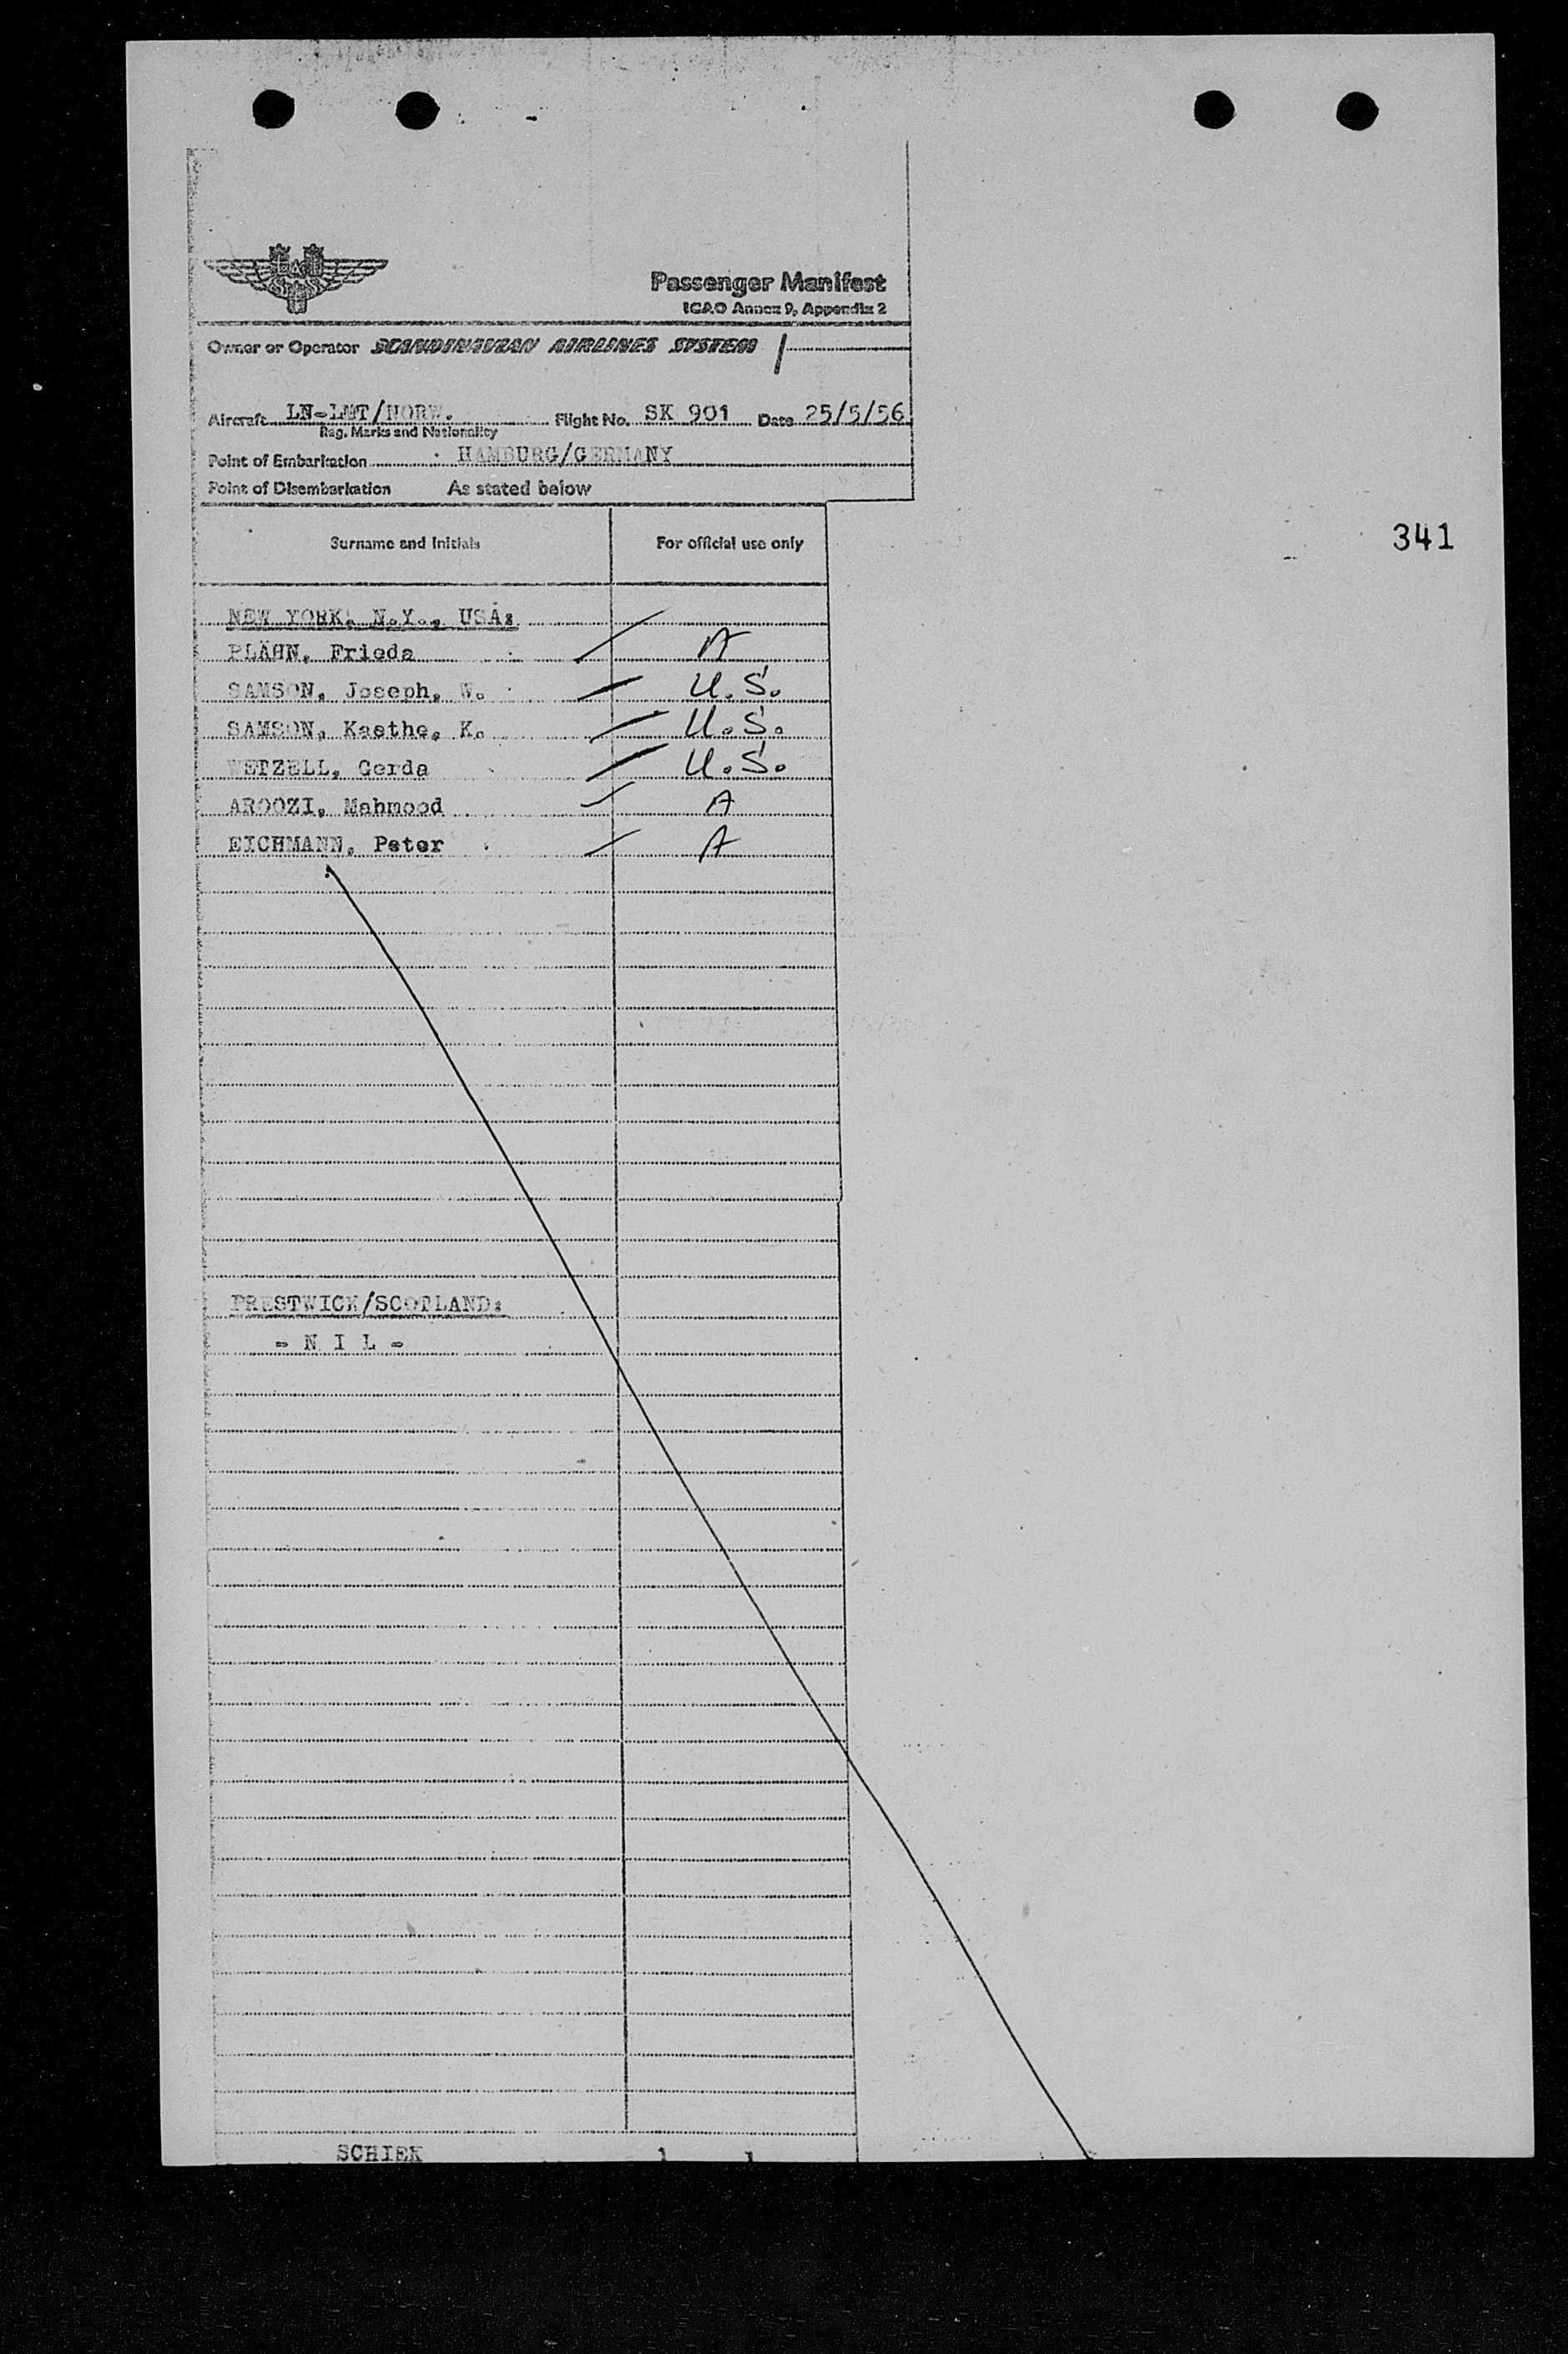 Passenger Manifest
ICAO Annex 9, Appendix 2
Owner or Operator SCANDINAVIAN AIRLINES SYSTEM
Aircraft LN-LMT/NORW. Flight No. SK 901 Date 25/5/56
Reg. Marks and Nationality
Point of Embarkation HAMBURG/GERMANY
Point of Disembarkation As stated below
341
Surname and Initials For official use only
NEW YORK, N.Y., USA:
PLÄHN, Frieda A
SAMSON, Joseph, W. U.S.
SAMSON, Kaethe, K. U.S.
WETZELL, Gerda U.S.
AROOZI, Mahmood A
EICHMANN, Peter A
PRESTWICK/SCOTLAND:
- N I L -
SCHIEK